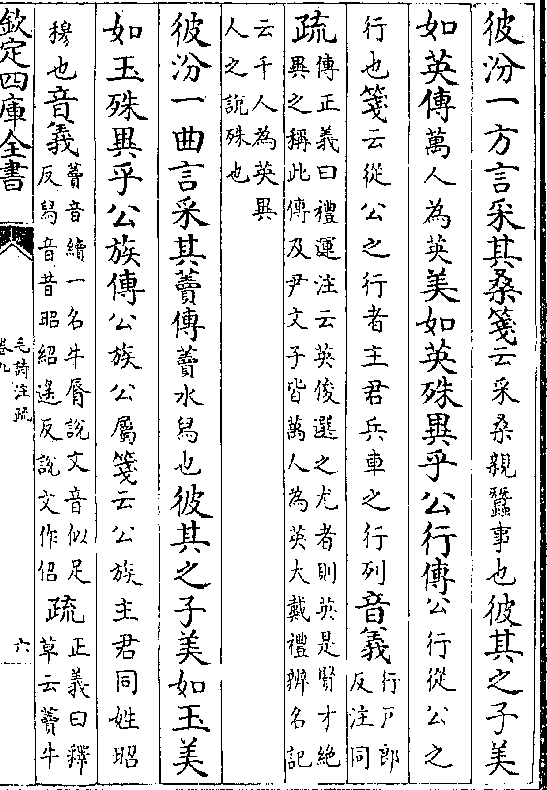 彼汾一方言采其桑箋云采桑親蠶事也彼其之子美
如英傳萬人為英美如英殊異乎公行傳公行從公之
行也箋云從公之行者主君兵車之行列音義行戸郎
反注同
疏傳正義曰禮運注云英俊選之尤者則英是賢才絶
異之稱此傳及尹文子皆萬人為英大戴禮辨名記
云千人為英異
人之說殊也
彼汾一曲言采其藚傳藚水舄也彼其之子美如玉美
如玉殊異乎公族傳公族公屬箋云公族主君同姓昭
穆也音義藚音續一名牛脣說文音似足
反舄音昔昭紹遙反說文作佋
疏正義曰釋
草云藚牛
欽定四庫全書
毛詩注疏
卷九
六